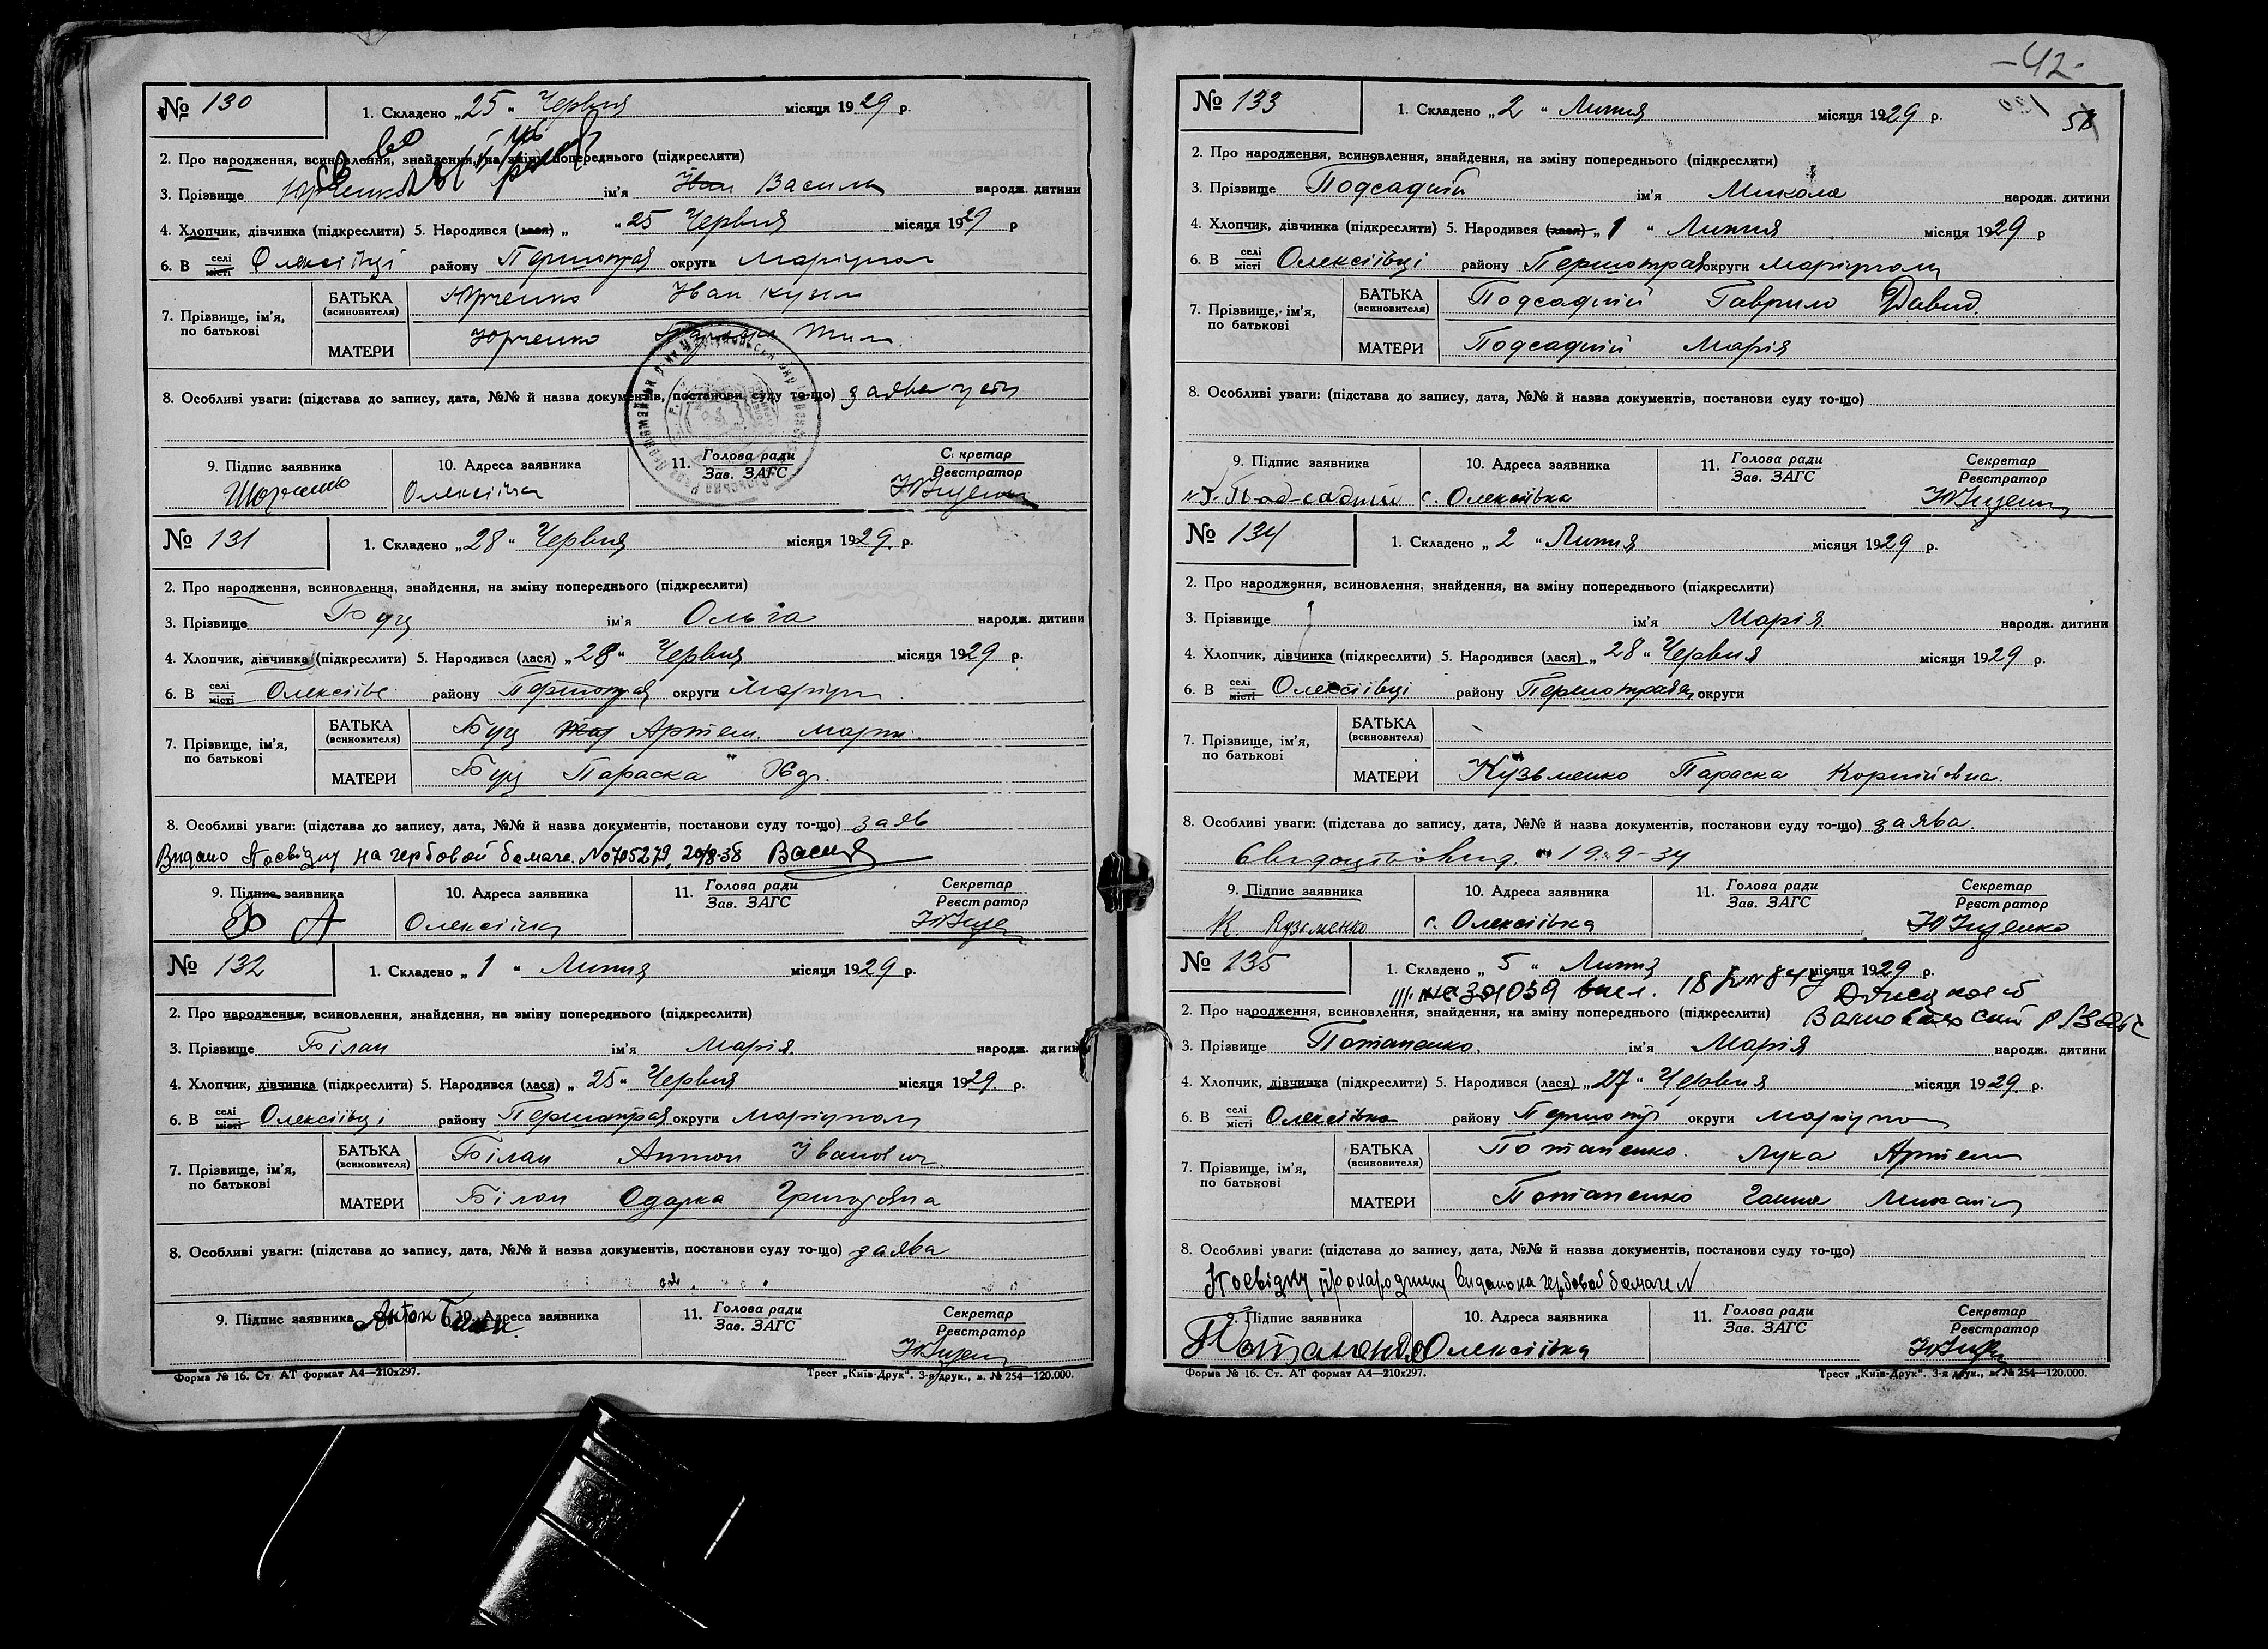 № 130
1. Складено „25" Червня місяця 1929 р.
2. Про народження, всиновлення, знайдення, на зміну попереднього (підкреслити)
3. Прізвище Юрченко ім'я Іван Василь народж. дитини
4. Хлопчик, дівчинка (підкреслити) 5. Народився (лася) „ "25 Червня місяця 1929 р
6. В селі місті Олексіївці району Першотрав округи Маріупол
7. Прізвище, ім'я, по батькові
БАТЬКА (всиновителя) Юрченко Іван Кузьм
МАТЕРИ Юрченко Тим.
8. Особливі уваги: (підстава до запису, дата, №№ й назва документів, постанови суду то-що) заява
9. Підпис заявника 10. Адреса заявника 11. Голова ради Зав. ЗАГС Секретар Реєстратор
Олексіївка
№ 131
1. Складено „28" Червня місяця 1929 р.
2. Про народження, всиновлення, знайдення, на зміну попереднього (підкреслити)
3. Прізвище Буц ім'я Ольга народж. дитини
4. Хлопчик, дівчинка (підкреслити) 5. Народився (лася) „28" Червня місяця 1929 р.
6. В селі місті Олексіївс району Першотрав округи Маріуп
7. Прізвище, ім'я, по батькові
БАТЬКА (всиновителя) Буц Артем. Март.
МАТЕРИ Буц Параска
8. Особливі уваги: (підстава до запису, дата, №№ й назва документів, постанови суду то-що) заяв
Видано посвідку на гербовой бамаге. №705279, 20/8-38
9. Підпис заявника 10. Адреса заявника 11. Голова ради Зав. ЗАГС Секретар Реєстратор
Олексіївка
№ 132
1. Складено „1" Липня місяця 1929 р.
2. Про народження, всиновлення, знайдення, на зміну попереднього (підкреслити)
3. Прізвище Білан ім'я Марія. народж. дитини
4. Хлопчик, дівчинка (підкреслити) 5. Народився (лася) „25" Червня місяця 1929 р.
6. В селі місті Олексіївці району Першотрав округи Маріупол
7. Прізвище, ім'я, по батькові
БАТЬКА (всиновителя) Білан Антон Іванович.
МАТЕРИ Білан Одарка Григоровна
8. Особливі уваги: (підстава до запису, дата, №№ й назва документів, постанови суду то-що) заява
9. Підпис заявника 10. Адреса заявника 11. Голова ради Зав. ЗАГС Секретар Реєстратор
Антон Білан
Форма № 16. Ст. АТ формат А4—210х297. Трест „Київ-Друк". 3-я друк., з. № 254—120.000.
-42-
№ 133
1. Складено „2" Липня місяця 1929 р.
58
2. Про народження, всиновлення, знайдення, на зміну попереднього (підкреслити)
3. Прізвище Подсадній ім'я Микола народж. дитини
4. Хлопчик, дівчинка (підкреслити) 5. Народився (лася) „1" Липня місяця 1929 р
6. В селі місті Олексіївці району Першотрав округи Маріуполь
7. Прізвище, ім'я, по батькові
БАТЬКА (всиновителя) Подсадній Гаврило Давид.
МАТЕРИ Подсадній Марія
8. Особливі уваги: (підстава до запису, дата, №№ й назва документів, постанови суду то-що)
9. Підпис заявника 10. Адреса заявника 11. Голова ради Зав. ЗАГС Секретар Реєстратор
Подсадній с. Олексіївка
№ 134
1. Складено „2" Липня місяця 1929 р.
2. Про народження, всиновлення, знайдення, на зміну попереднього (підкреслити)
3. Прізвище ім'я Марія народж. дитини
4. Хлопчик, дівчинка (підкреслити) 5. Народився (лася) „28" Червня місяця 1929 р.
6. В селі місті Олексіївці району Першотравен округи
7. Прізвище, ім'я, по батькові
БАТЬКА (всиновителя)
МАТЕРИ Кузьменко Параска Корніївна.
8. Особливі уваги: (підстава до запису, дата, №№ й назва документів, постанови суду то-що) заява.
19-9-34
9. Підпис заявника 10. Адреса заявника 11. Голова ради Зав. ЗАГС Секретар Реєстратор
К. Кузьменко с. Олексіївка
№ 135
1. Складено „5" Липня місяця 1929 р.
2. Про народження, всиновлення, знайдення, на зміну попереднього (підкреслити)
3. Прізвище Потапенко. ім'я Марія народж. дитини
4. Хлопчик, дівчинка (підкреслити) 5. Народився (лася) „27" Червня місяця 1929 р.
6. В селі місті Олексіївка району Першотр округи Маріупол
7. Прізвище, ім'я, по батькові
БАТЬКА (всиновителя) Потапенко. Лука Артем
МАТЕРИ Потапенко Ганна Михайл
8. Особливі уваги: (підстава до запису, дата, №№ й назва документів, постанови суду то-що)
Посвідку про народження видано на гербовой бамаге N
9. Підпис заявника 10. Адреса заявника 11. Голова ради Зав. ЗАГС Секретар Реєстратор
Потапенко Олексіївка
Форма № 16. Ст. АТ формат А4—210х297. Трест „Київ-Друк". 3-я друк., з. № 254—120.000.